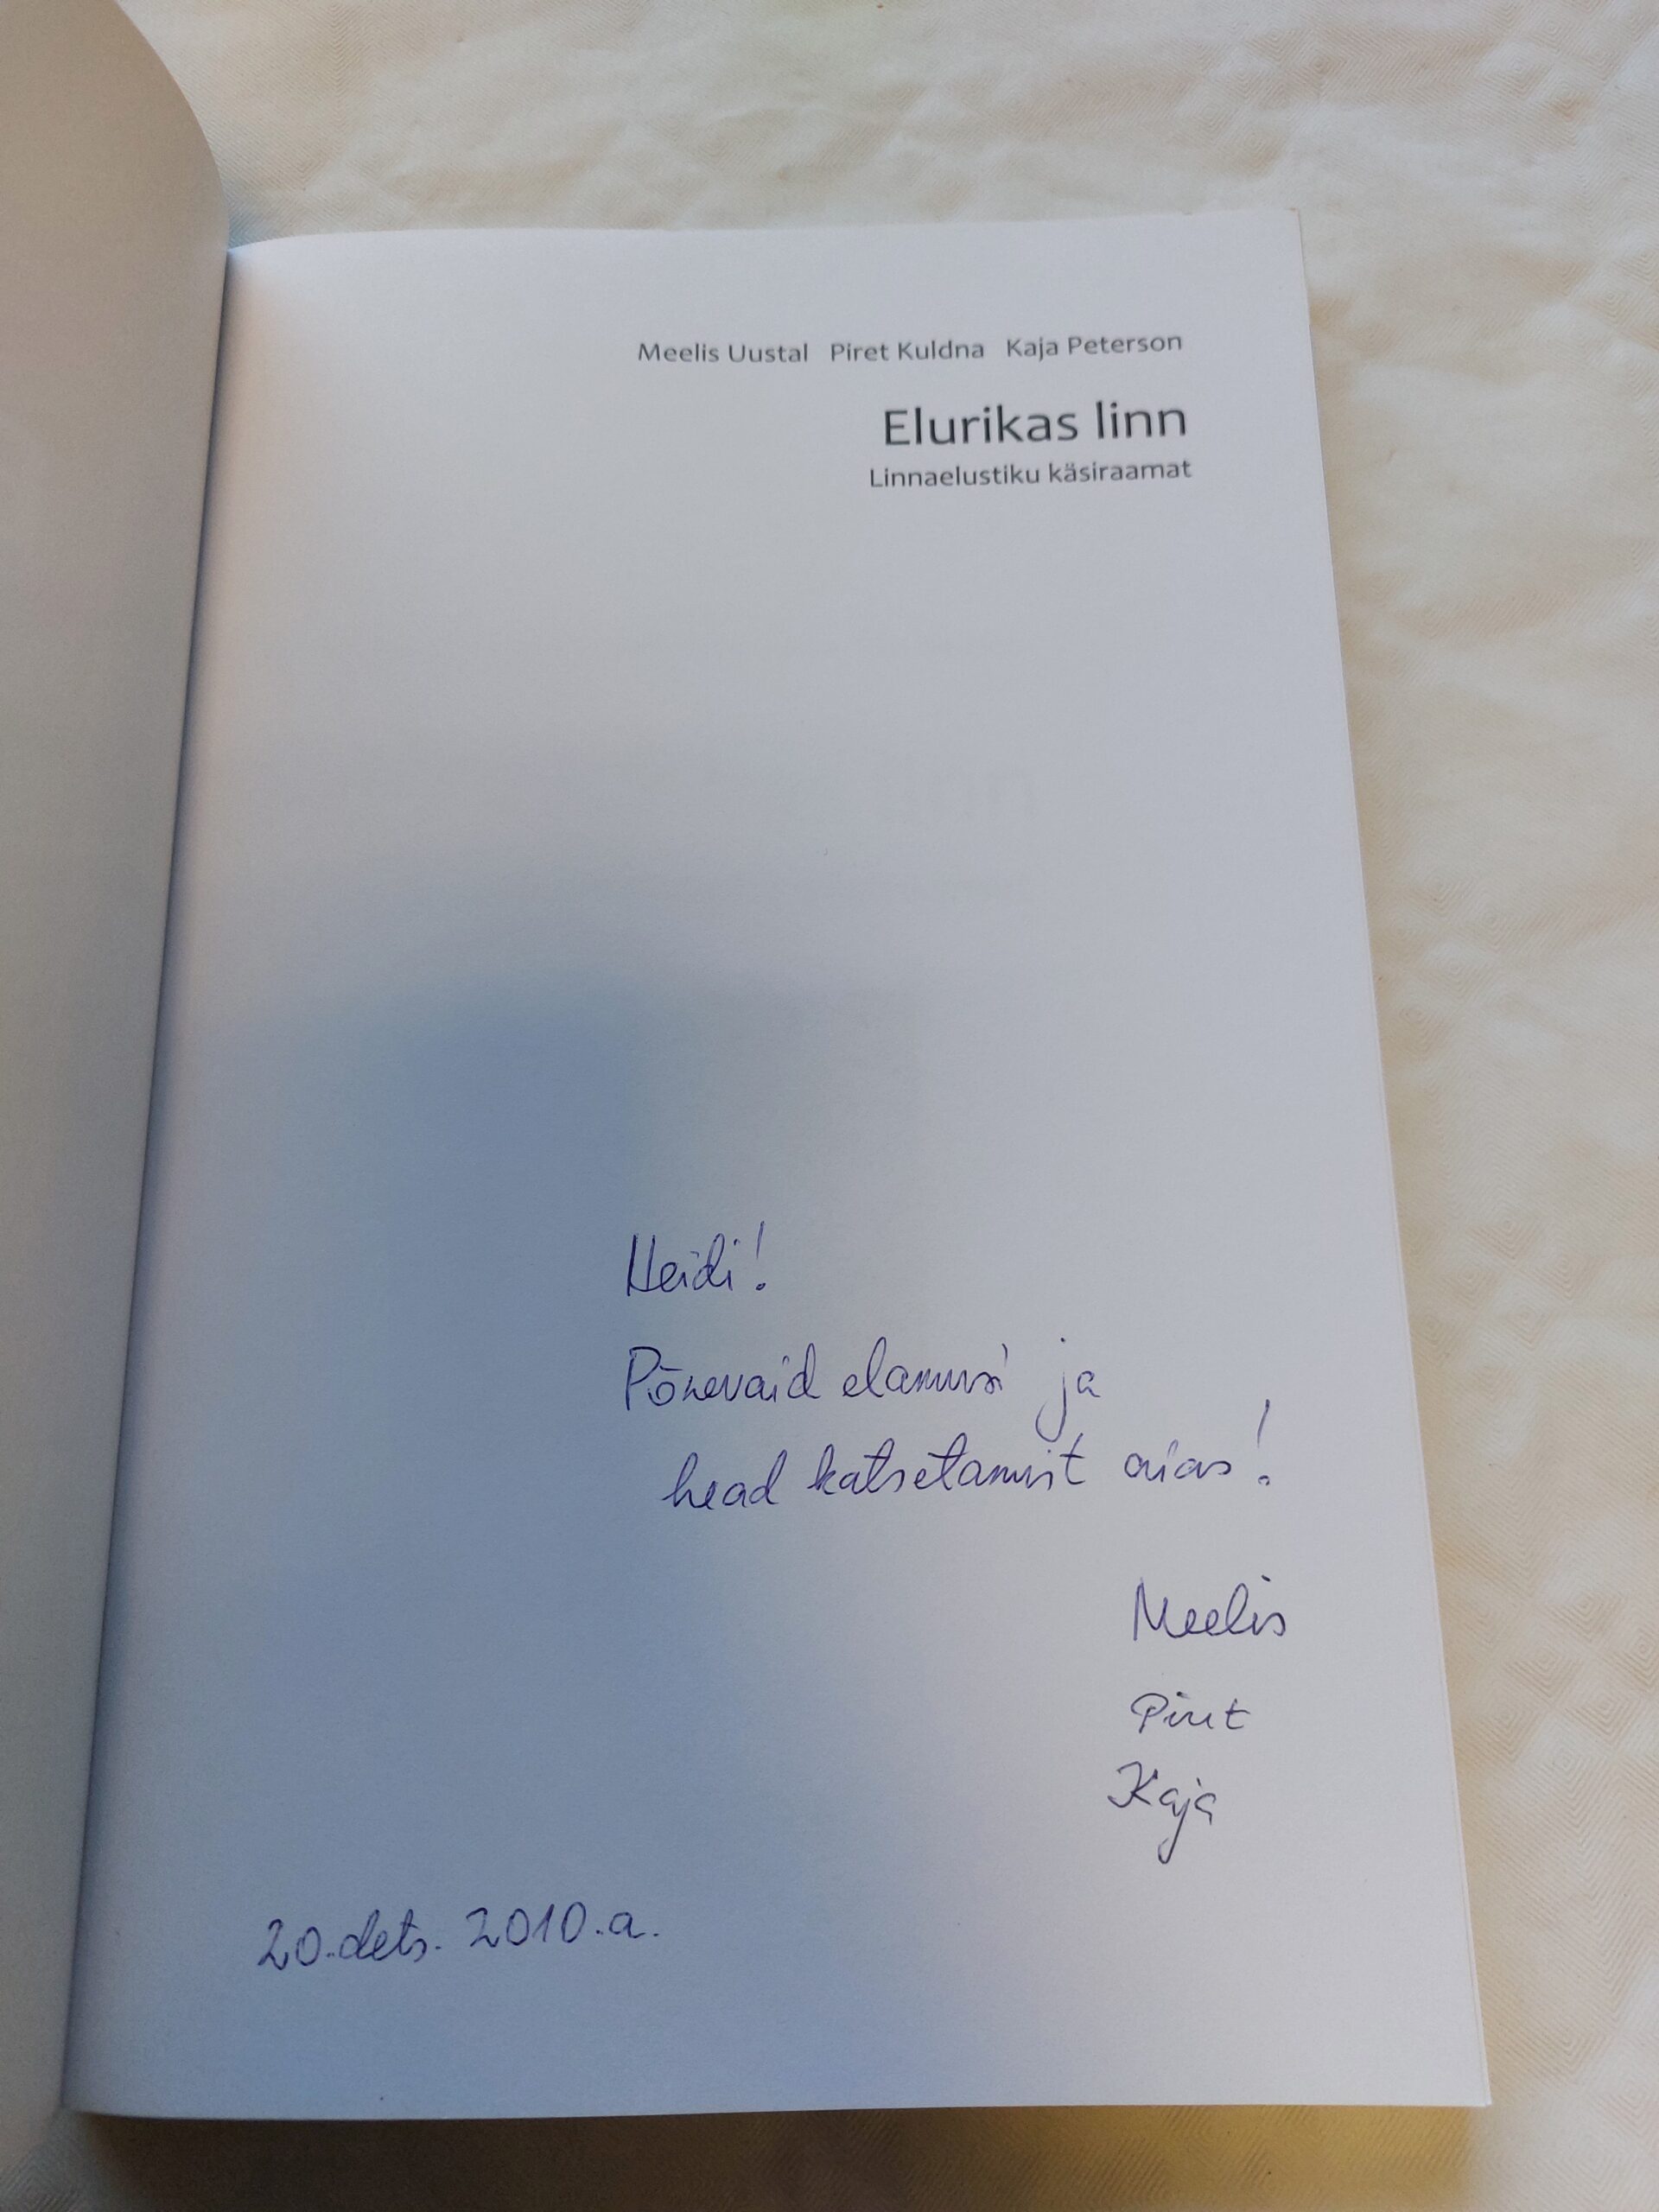 Meelis Uustal Piret Kuldna Kaja Peterson
Elurikas linn
Linnaelustiku käsiraamat
Heidi!
Põnevaid elamusi ja
head katsetamist aias!
Meelis
Piret
Kaja
20. dets. 2010.a.